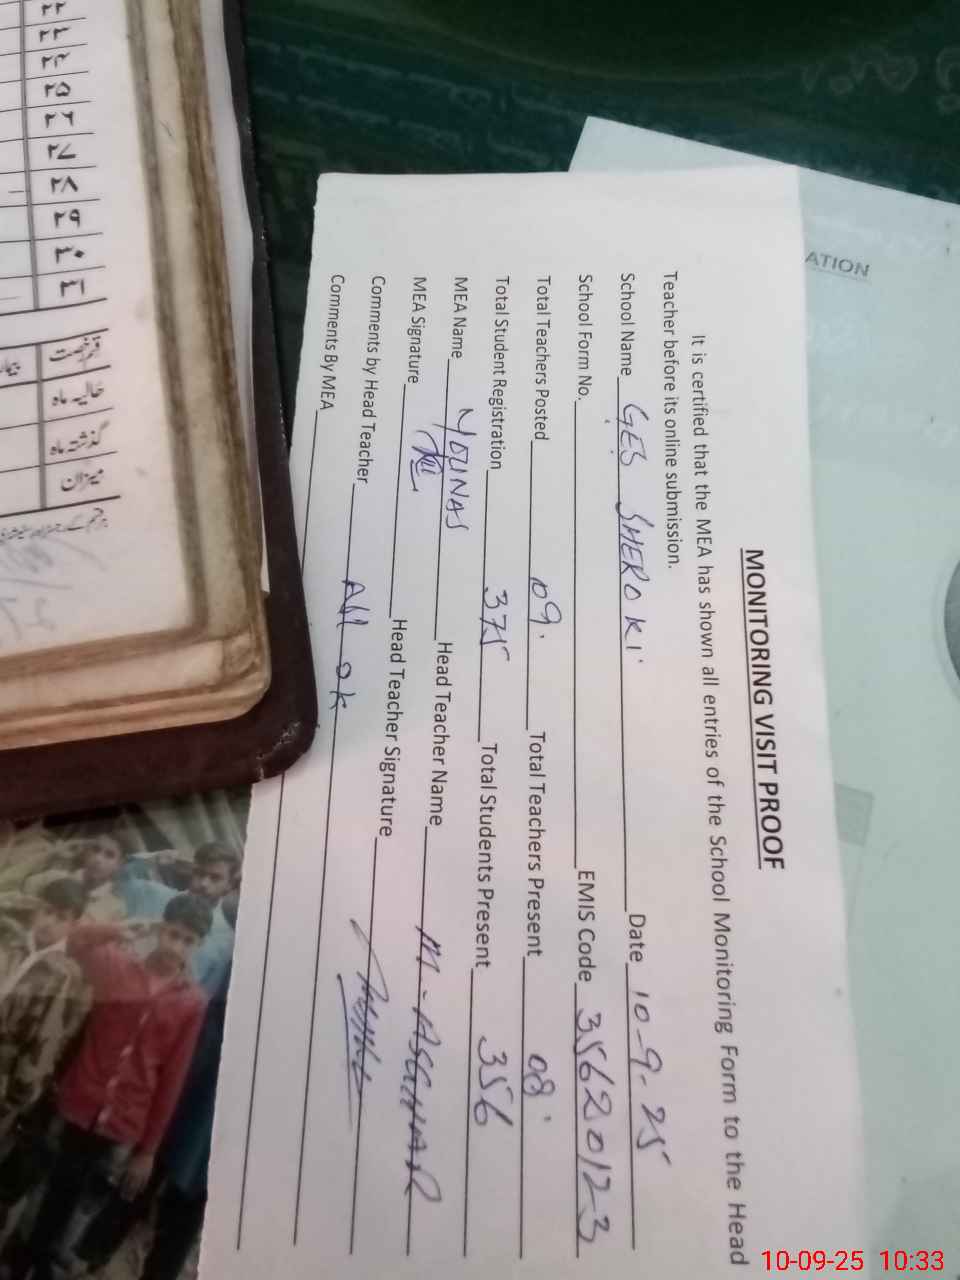 MONITORING VISIT PROOF
It is certified that the MEA has shown all entries of the School Monitoring Form to the Head
Teacher before its online submission.
School Name GES SHEROKI Date 10-9-25
School Form No. EMIS Code 35620123
Total Teachers Posted 09. Total Teachers Present 08.
Total Student Registration 375 Total Students Present 356
MEA Name YOUNAS Head Teacher Name M-ASGHAR
MEA Signature Head Teacher Signature
Comments by Head Teacher All ok
Comments By MEA
ATION
قسم فرصت
حالیہ ماہ
گذشتہ ماہ
میزان
10-09-25 10:33